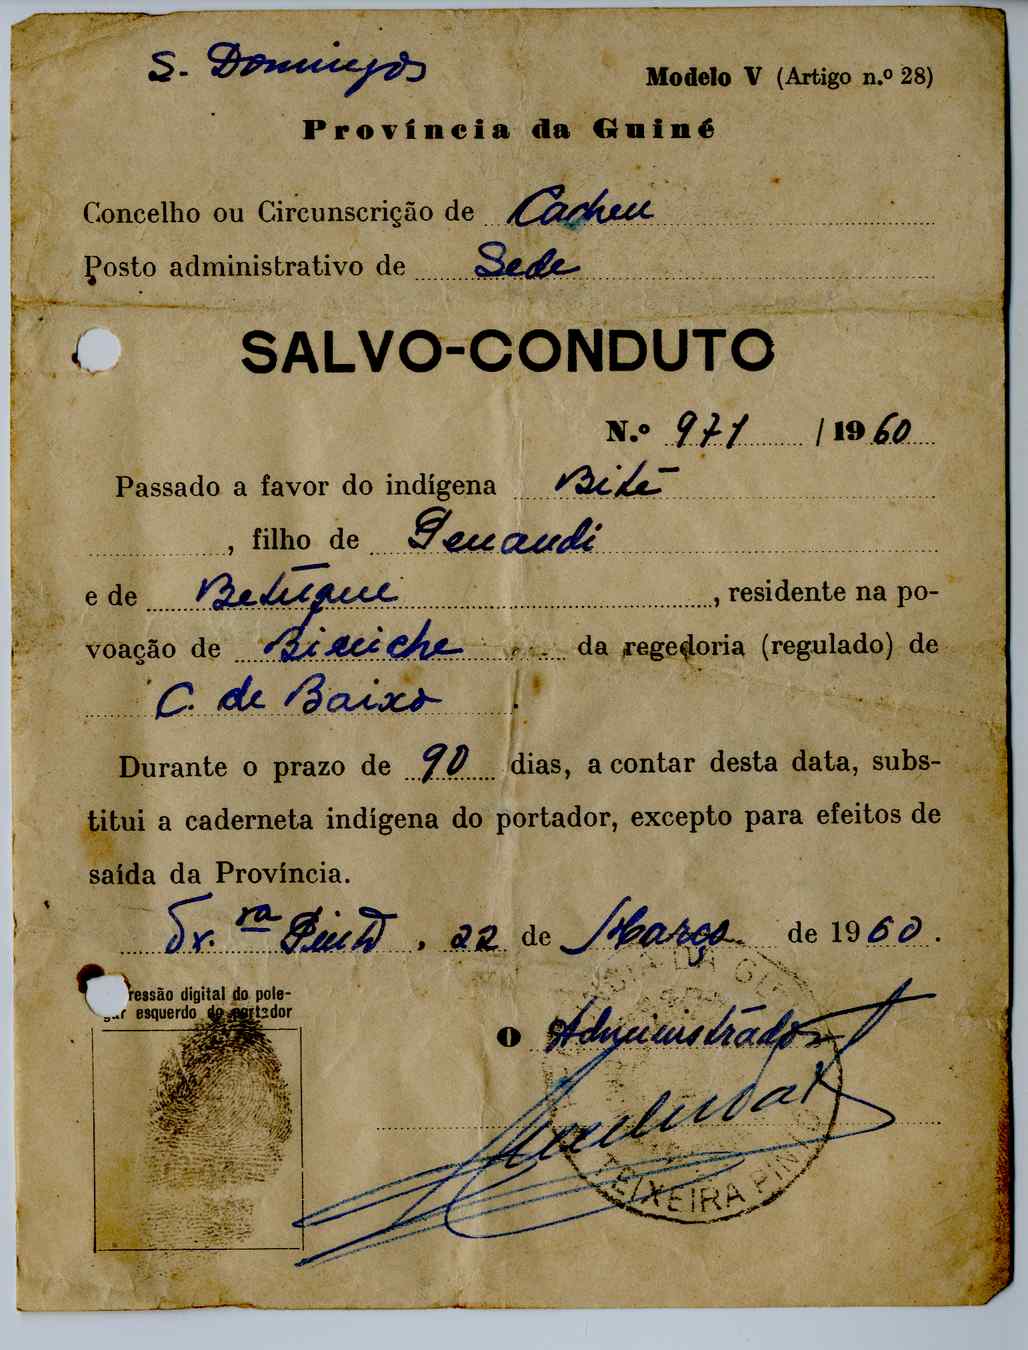 S. Domingos
Modelo V (Artigo n.º 28)
Província da Guiné
Concelho ou Circunscrição de Cacheu
Posto administrativo de Sede
SALVO-CONDUTO
N.º 971 / 1960
Passado a favor do indígena Bité
, filho de Penandi
e de Betúque, residente na po-
voação de Bianiche da regedoria (regulado) de
C. de Baixo.
Durante o prazo de 90 dias, a contar desta data, subs-
titui a caderneta indígena do portador, excepto para efeitos de
saída da Província.
Tx.ra Pinto, 22 de Março de 1960.
ressão digital do pole-
gar esquerdo do portador
O Administrador
TEIXEIRA PINTO